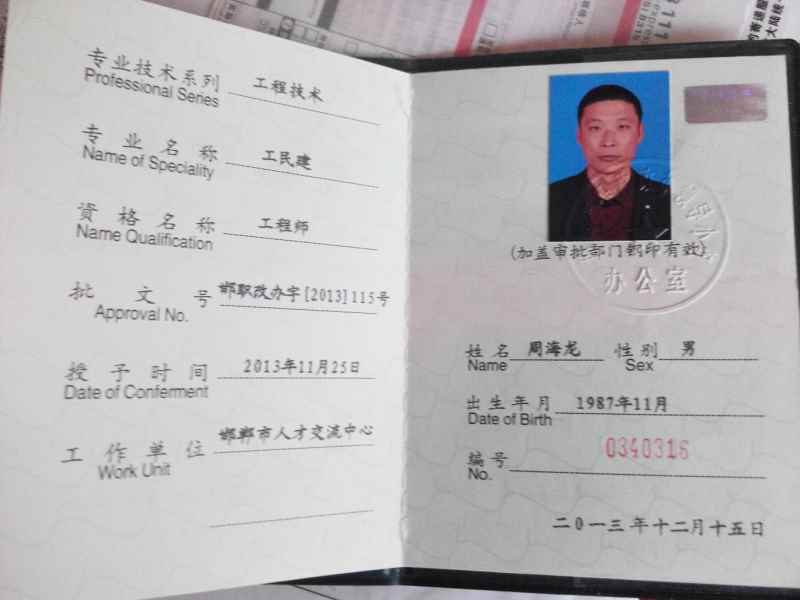 专业技术系列 工程技术
Professional Series
专业名称 工民建
Name of Speciality
资格名称 工程师
Name Qualification
批文号 邯职改办字[2013]115号
Approval No.
授予时间 2013年11月25日
Date of Conferment
工作单位 邯郸市人才交流中心
Work Unit
(加盖审批部门钢印有效)
办公室
姓名 周海龙 性别 男
Name Sex
出生年月 1987年11月
Date of Birth
编号 0340316
No.
二0一三年十二月十五日